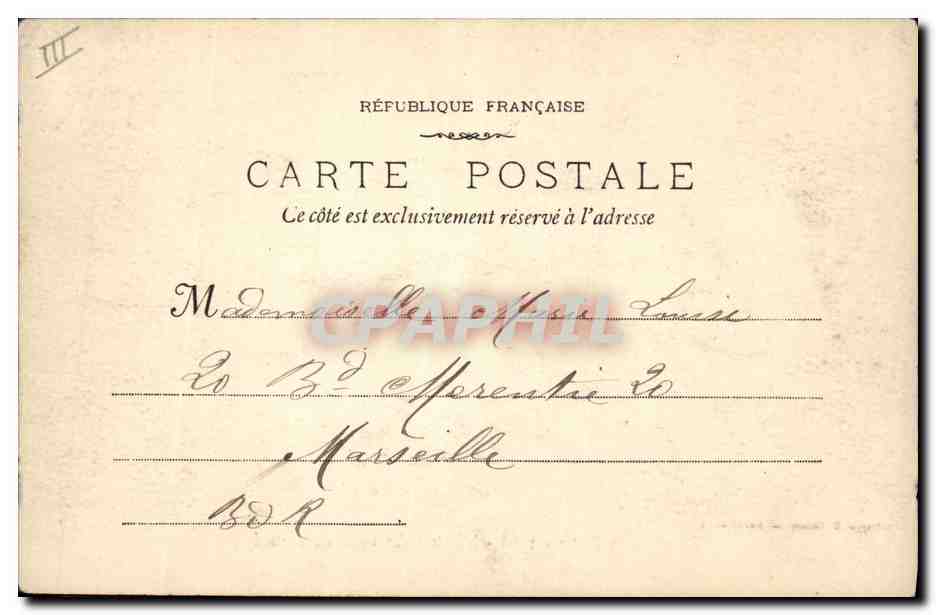 III
RÉPUBLIQUE FRANÇAISE
CARTE POSTALE
Ce côté est exclusivement réservé à l'adresse
Mademoiselle Marie Louise
CPAPHIL
20 Bd Merentie 20
Marseille
BdR